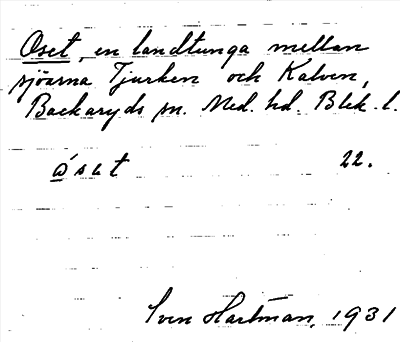 Oset, en landtunga mellan
sjöarna Tjurken och Kalven,
Backaryds sn. Med. hd. Blek. l.
åset 22.
Sven Hartman, 1931